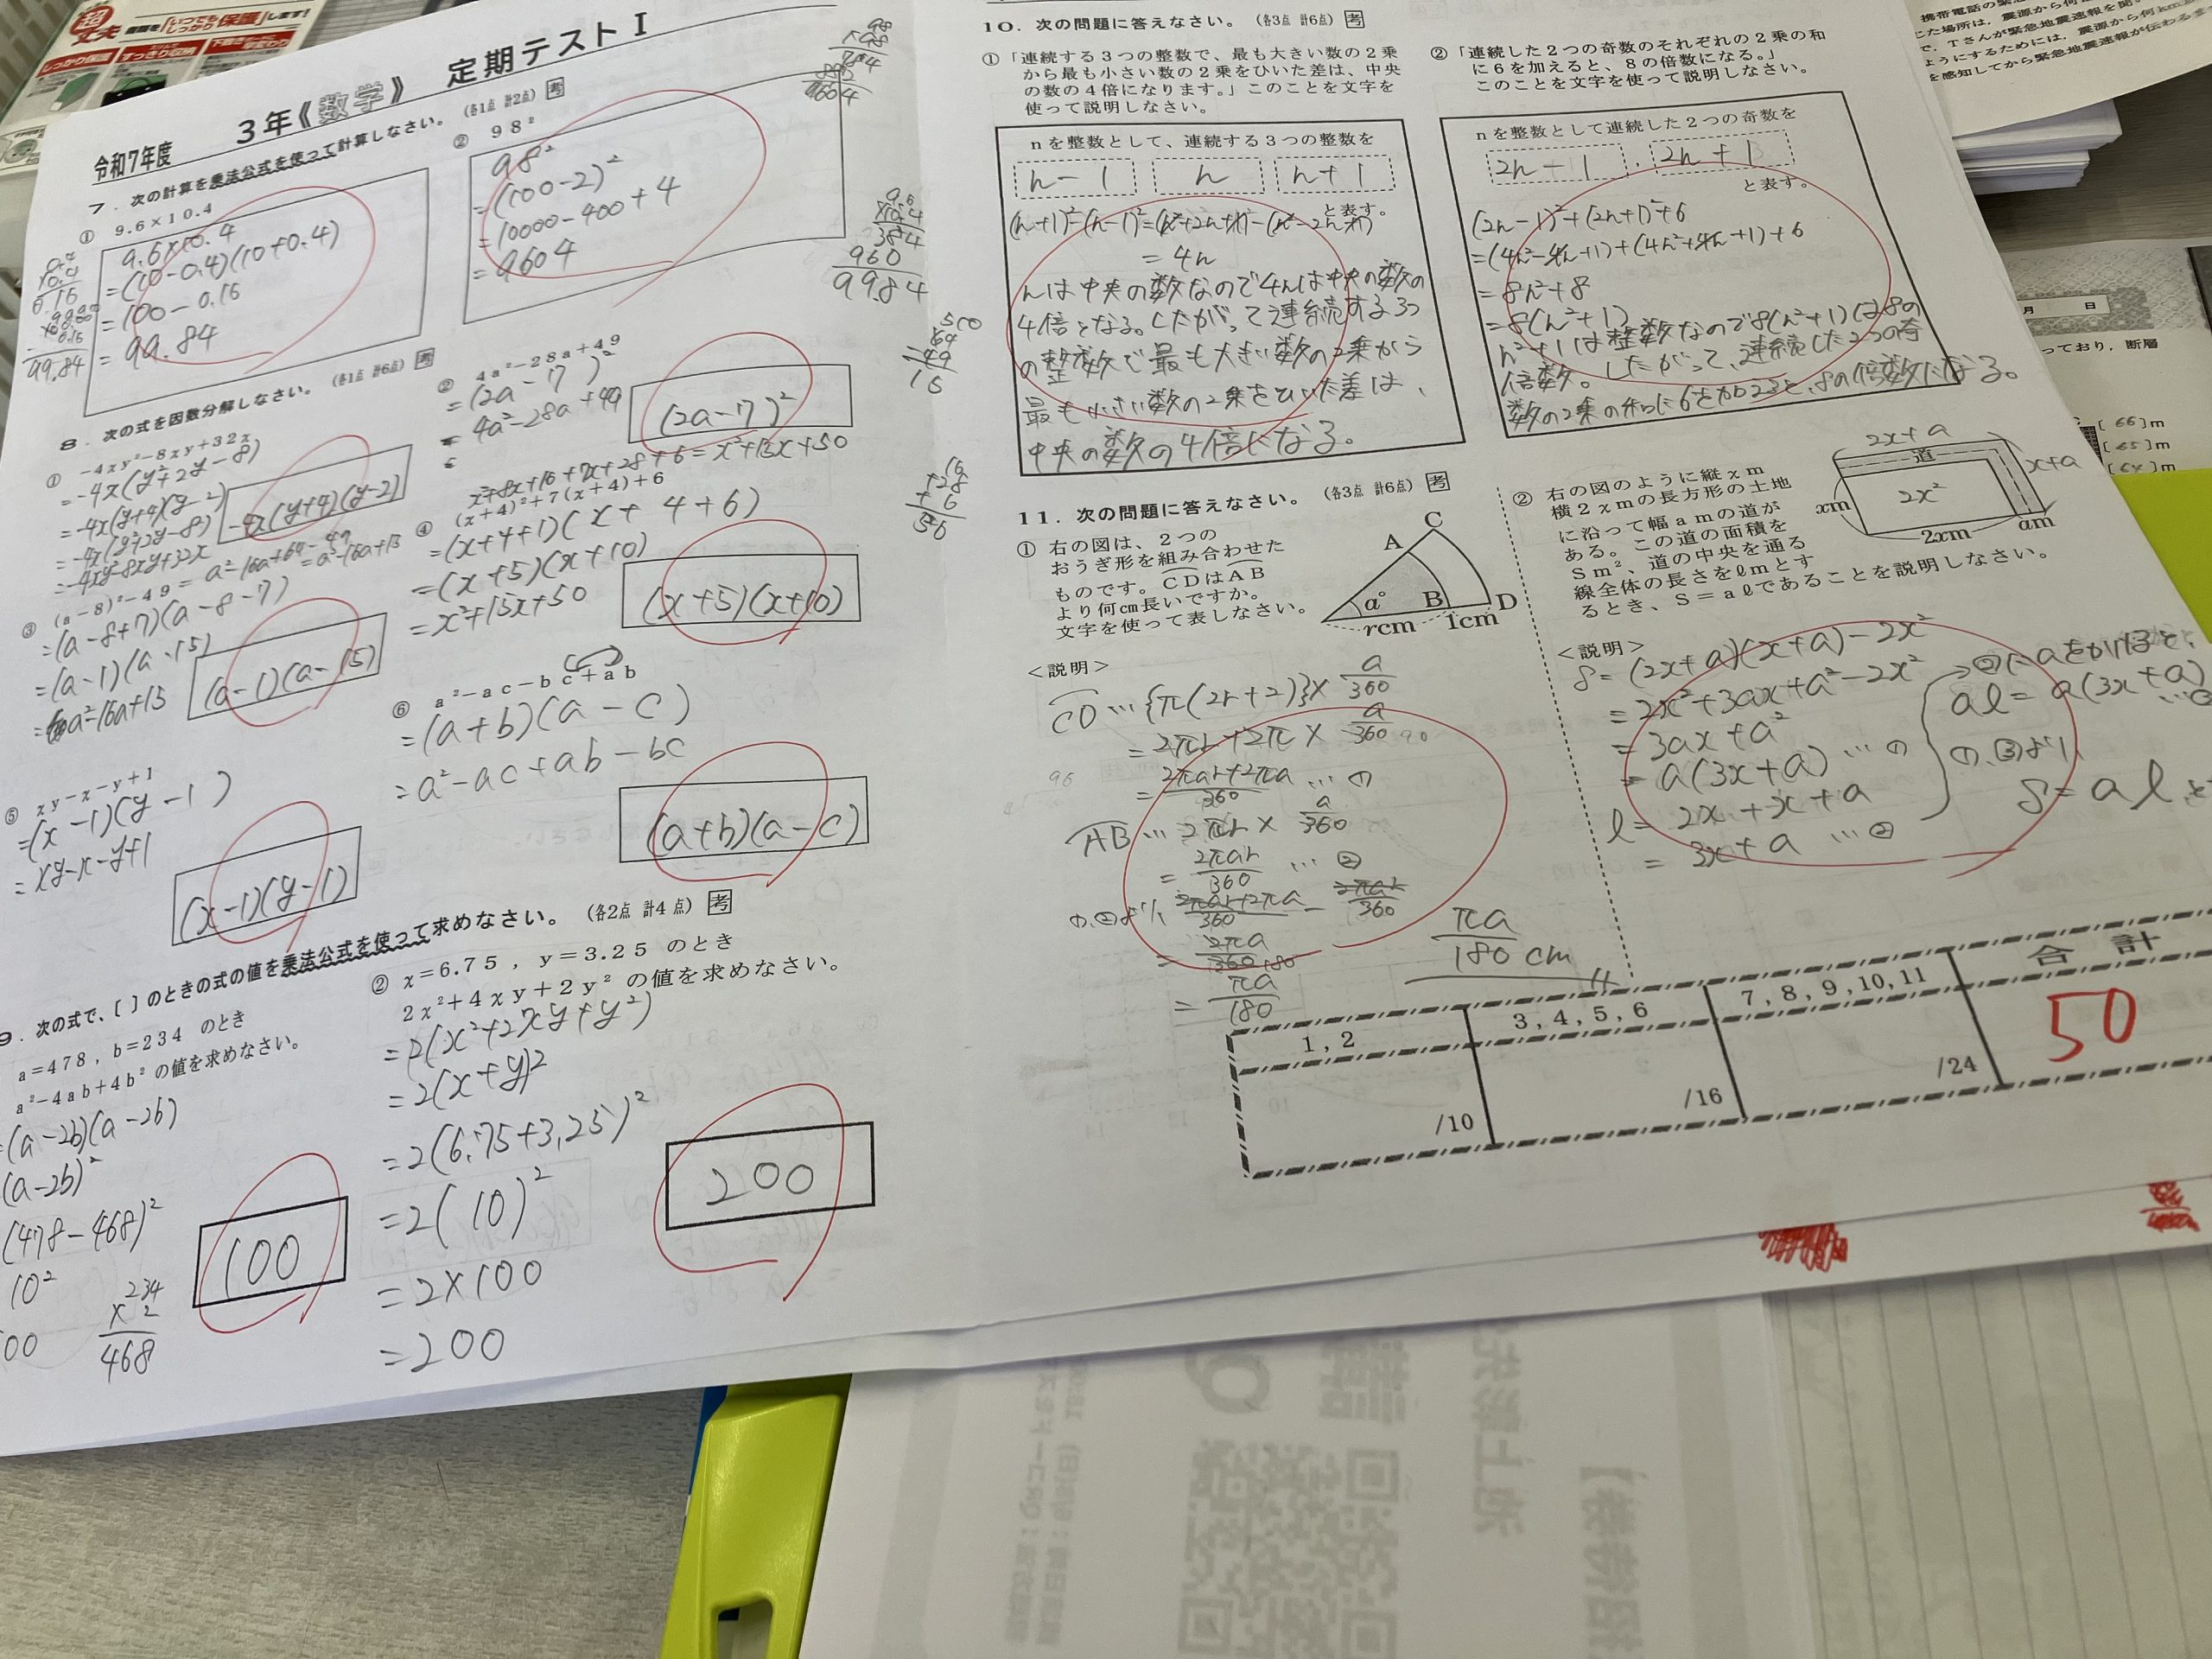 超丈夫
「いつでもしっかり保護」します!
しっかり保護
すっきり収納
令和7年度 3年《数学》 定期テストⅠ
7. 次の計算を乗法公式を使って計算しなさい。 (各1点 計2点) 考
① 9.6×10.4
9.6×10.4
=(10-0.4)(10+0.4)
=100-0.16
=99.84
② 98²
98²
=(100-2)²
=10000-400+4
=9604
8. 次の式を因数分解しなさい。 (各1点 計6点) 考
① -4xy²-8xy+32x
=-4x(y²+2y-8)
=-4x(y+4)(y-2)
=-4x(y²+2y-8)
=-4xy²-8xy+32x
-4x(y+4)(y-2)
② 4a²-28a+49
=(2a-7)²
=4a²-28a+49
(2a-7)²
③ (a-8)²-49=a²-16a+64-49=a²-16a+15
=(a-8+7)(a-8-7)
=(a-1)(a-15)
=a²-16a+15
(a-1)(a-15)
x²+8x+16+7x+28+6=x²+15x+50
④ (x+4)²+7(x+4)+6
=(x+4+1)(x+4+6)
=(x+5)(x+10)
=x²+15x+50
(x+5)(x+10)
⑤ xy-x-y+1
=(x-1)(y-1)
=xy-x-y+1
(x-1)(y-1)
⑥ a²-ac-bc+ab
=(a+b)(a-c)
=a²-ac+ab-bc
(a+b)(a-c)
9. 次の式で、[ ]のときの式の値を乗法公式を使って求めなさい。 (各2点 計4点) 考
a=478, b=234 のとき
a²-4ab+4b² の値を求めなさい。
=(a-2b)(a-2b)
(a-2b)²
(478-468)²
10²
00
234
×2
468
100
② x=6.75, y=3.25 のとき
2x²+4xy+2y² の値を求めなさい。
=2(x²+2xy+y²)
=2(x+y)²
=2(6.75+3.25)²
=2(10)²
=2×100
=200
200
9.6
×10.4
384
960
99.84
16
+28
+6
50
10. 次の問題に答えなさい。 (各3点 計6点) 考
①「連続する3つの整数で、最も大きい数の2乗
から最も小さい数の2乗をひいた差は、中央
の数の4倍になります。」このことを文字を
使って説明しなさい。
nを整数として、連続する3つの整数を
n-1 n n+1
と表す。
(n+1)²-(n-1)²=(n²+2n+1)-(n²-2n+1)
=4n
nは中央の数なので4nは中央の数の
4倍となる。したがって連続する3つ
の整数で最も大きい数の2乗から
最も小さい数の2乗をひいた差は、
中央の数の4倍になる。
②「連続した2つの奇数のそれぞれの2乗の和
に6を加えると、8の倍数になる。」
このことを文字を使って説明しなさい。
nを整数として連続した2つの奇数を
2n-1, 2n+1
と表す。
(2n-1)²+(2n+1)²+6
=(4n²-4n+1)+(4n²+4n+1)+6
=8n²+8
=8(n²+1)
n²+1は整数なので8(n²+1)は8の
倍数。したがって、連続した2つの奇
数の2乗の和に6を加えると、8の倍数になる。
11. 次の問題に答えなさい。 (各3点 計6点) 考
① 右の図は、2つの
おうぎ形を組み合わせた
ものです。CDはAB
より何cm長いですか。
文字を使って表しなさい。
A C a° B D rcm 1cm
<説明>
CD…{π(2r+2)}×a/360
=2πr+2π×a/360
=2πar+2πa/360 …①
AB…2πr×a/360
=2πar/360 …②
①,②より 2πar+2πa/360 - 2πar/360
=2πa/360 180
=πa/180
πa/180 cm
② 右の図のように縦xm
横2xmの長方形の土地
に沿って幅amの道が
ある。この道の面積を
Sm²、道の中央を通る
線全体の長さをℓmとす
るとき、S=aℓであることを説明しなさい。
2x+a
x+a
道
2x²
xm
2xm
am
<説明>
S=(2x+a)(x+a)-2x²
=2x²+3ax+a²-2x²
=3ax+a²
=a(3x+a) …①
ℓ=2x+x+a
=3x+a …②
②にaをかけると、
aℓ=a(3x+a) …③
①,③より、
S=aℓ
1, 2
/10
3, 4, 5, 6
/16
7, 8, 9, 10, 11
/24
合計
50
携帯電話の緊
た場所は、震源から何
で、Tさんが緊急地震速報を聞
ようにするためには、震源から何km
を感知してから緊急地震速報が伝わるま
月 日
っており、断層
[66]m
[65]m
[64]m